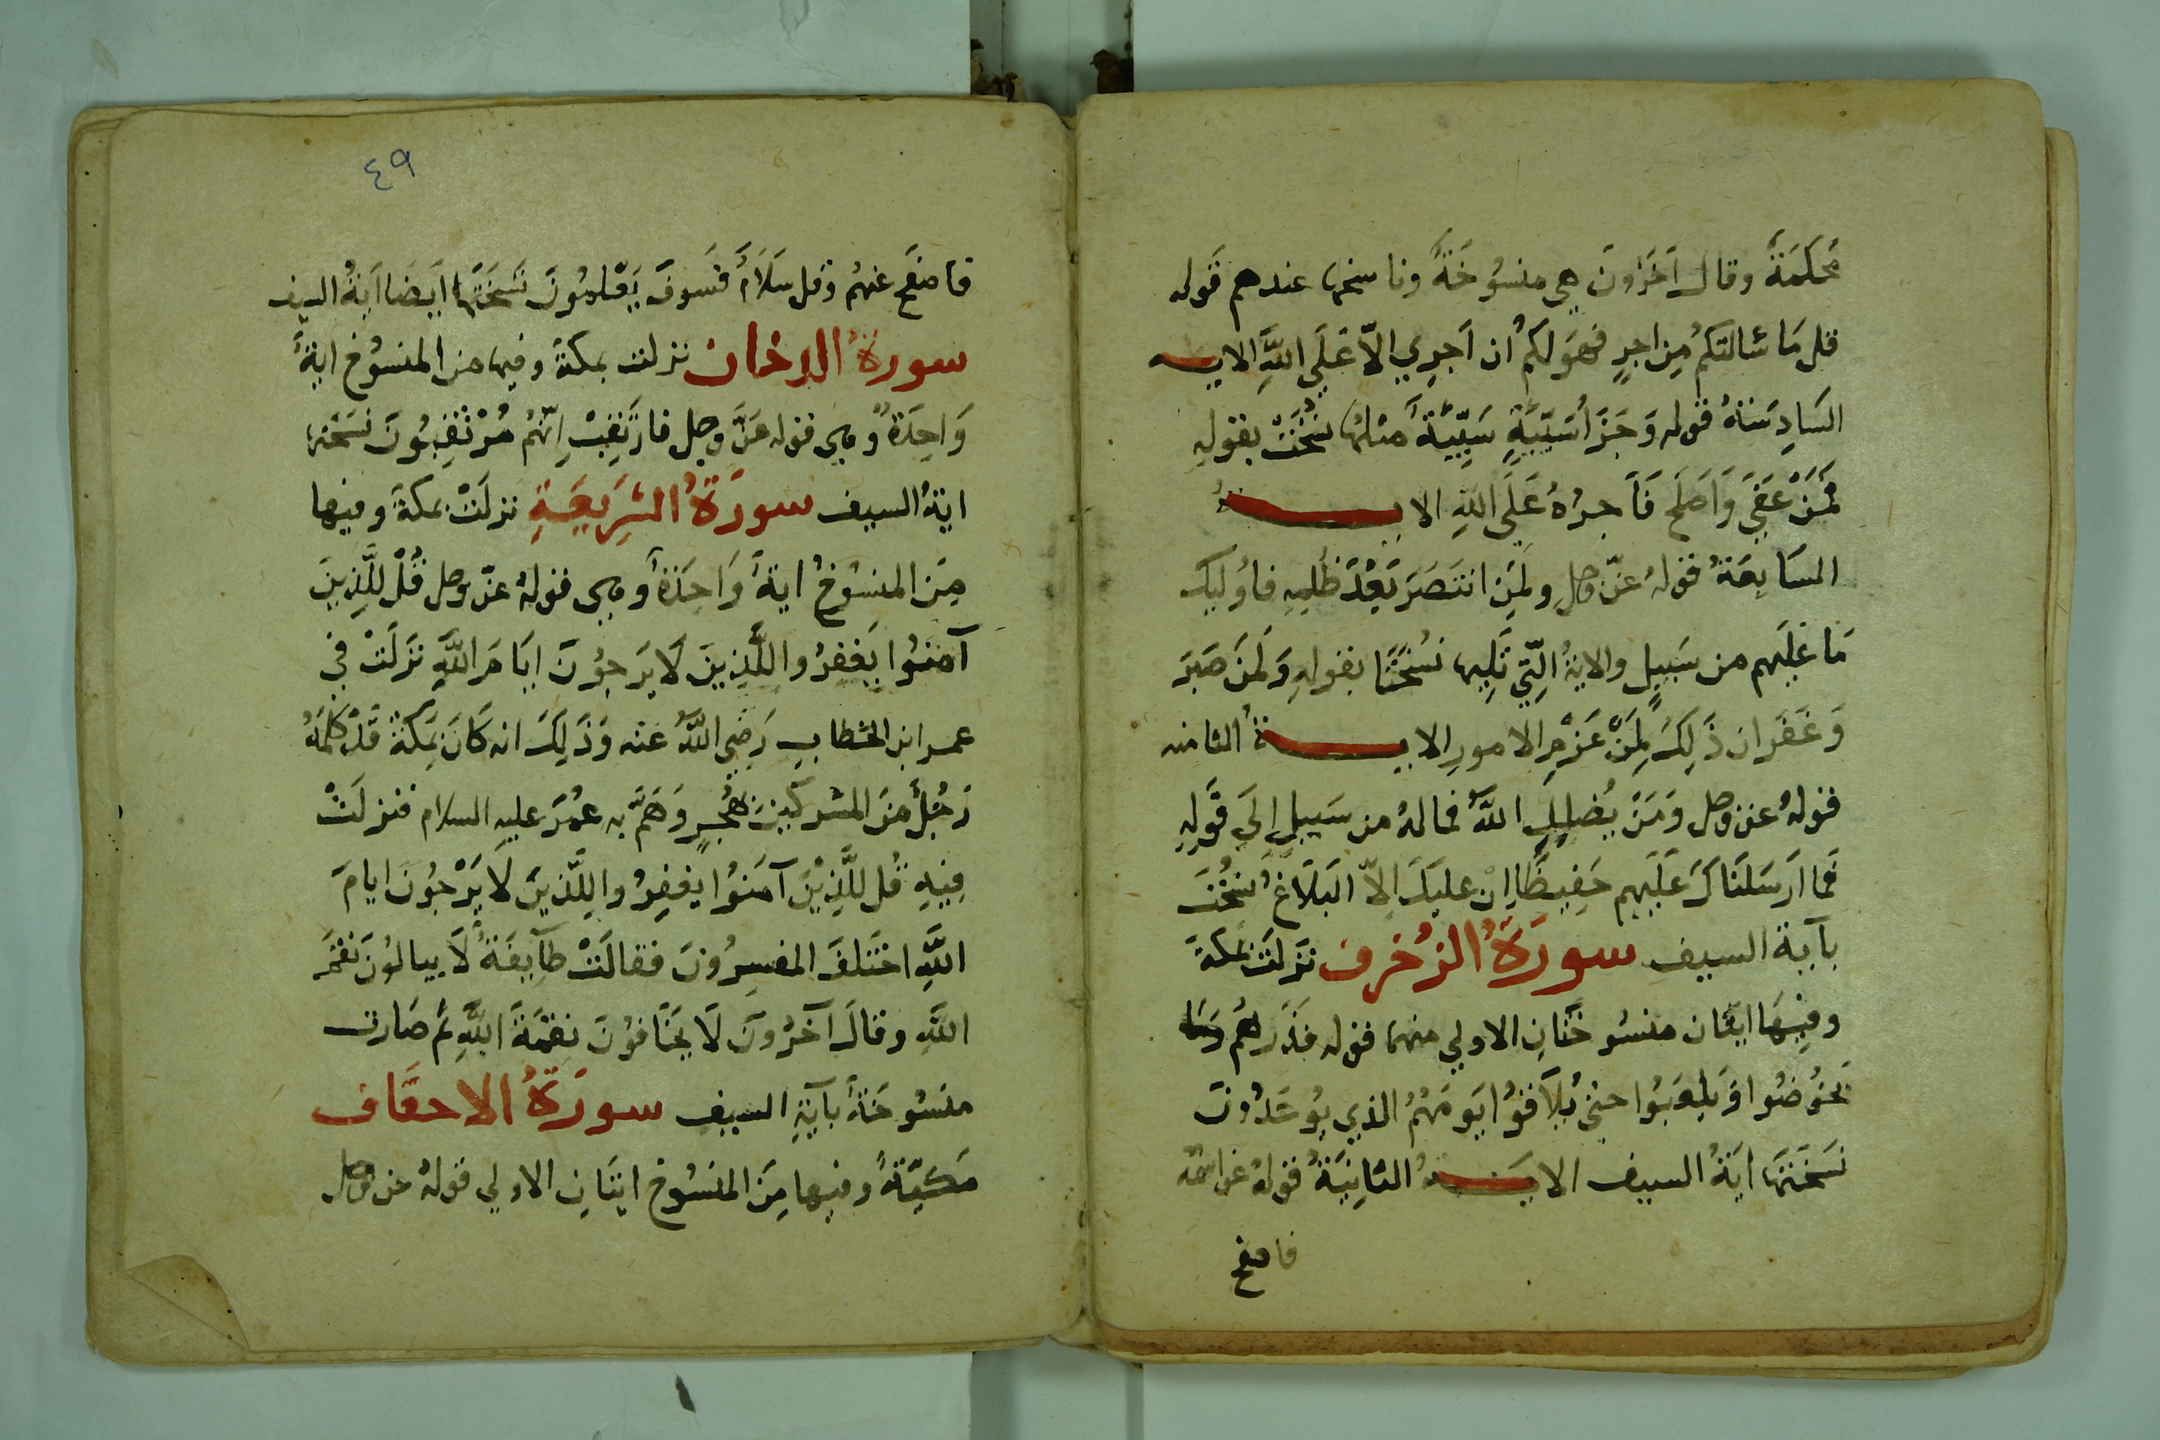 محكمَةً وقال آخَرُونَ هِي منسُوخَةً وناسخها عندهم قَوله
قل مَا سَالتكمُ مِن اجرٍ فهوَ لكمُ ان اَجرِي الاّ عَلَي اللّهِ الايـــه
السَادِسَة قوله وَجَزَاُ سَيّئَةٍ سَيِّئَةً مثلهُا نسُخَتْ بقولهِ
فَمَنْ عَفَيَ وَاَصلَح فَاَجرُهُ عَلَي اللّهِ الايـــــةُ
السَابِعَةُ قولهُ عزّ وجلِ ولمَنِ انتَصَرَ بَعْدَ ظُلمِهِ فاوُليك
مَا عَلَيهم من سَبيلٍ والايةُ الِتّي تَليِها نسُخَتَا بقولهِ وَلمَنَ صَبَرَ
وَغَفَرَ ان ذَلِكَ لَمِنْ عَزْمِ الامورِ الايـــــةُ الثامنه
قولهُ عز وجل وَمَنْ يُضلِلِ اللّهُ فمالهُ من سَبيلٍ اِلَي قَولِهِ
فَما اَرسَلنَاكَ عَلَيهم حَفِيظًا اِنْ عليكَ الاّ البَلاَغُ نسُخُتَ
بآيةَ السيف سورَةُ الزخُرف نَزَلَتْ بمكةَ
وفِيهَا ايَتَان منسُوخَتَانِ الاولي منهما قوله فذَرهُم
يَخوُضُوا وَيلعَبَوُا حَتيَّ يُلاَقوُا يَومَهُمُ الذي يوُعَدُونَ
نَسَخَتهَا ايَةُ السيف الايـــــةُ الثانِيَةُ قولهُ عزاسمُه
فاصفح
٤٩
فاصفَح عَنهُم وقل سَلاَمٌ فسَوفَ يَعْلمُونَ نَسَخَتهَا اَيضَا اَيةُ السيف
سورةُ الدخان نزلت بمكةَ وفيها من المنسوُخ ايةً
وَاحِدَةً وهي قوله عَزَّ وجل فارتَقِبْ اِنّهُم مُرْتَقِبُونَ نسَخَتها
ايةُ السيف سورَةُ الشَرِيعَةِ نزلَتْ بمكةَ وفيها
مِنَ المنسُوخُ ايةً وَاحِدَةً وهي قولهُ عزّ وجل قُلْ لِلَّذِينَ
آمنَوُا يَغفِرُوا لِلَّذِينَ لاَ يَرجوُنَ ايَامَ اللَّهِ نَزَلَتْ في
عمر ابن الخطابِ رَضِيَ اللَّهُ عنه وَذَلِكَ انه كَانَ بمَكَةَ قَدْ كلمَهُ
رَجُلً منَ المشركينَ بهُجرٍ وَهَمّ به عمُرَ عليهِ السلام فنزلَتْ
فِيهِ قُل لِلَّذِيْنَ آمَنوُا يغفِرُوا لِلَّذِينَ لاَ يَرْجوُنَ ايامَ
اللَّهِ اختَلَفَ المفسِرُونَ فقالَتْ طَآيِفَةً لاَ يبالوُنَ نقمَ
اللَّهِ وقالَ آخَرُونَ لاَ يَخَافوُنَ نِقمَةَ اللَّهِ ثم صَارت
منسُوخَةً بآيَةِ السيفِ سورَةُ الاحقَاف
مَكيّةً وفيها مِنَ المنسوُخ ايتَانِ الاولي قولهُ عز وجل